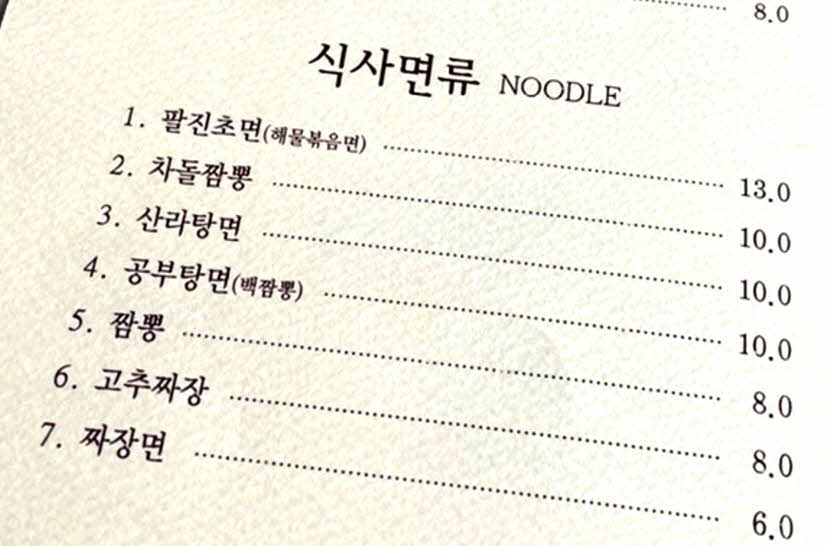 8.0
식사면류 NOODLE
1. 팔진초면(해물볶음면) 13.0
2. 차돌짬뽕 10.0
3. 산라탕면 10.0
4. 공부탕면(백짬뽕) 10.0
5. 짬뽕 8.0
6. 고추짜장 8.0
7. 짜장면 6.0